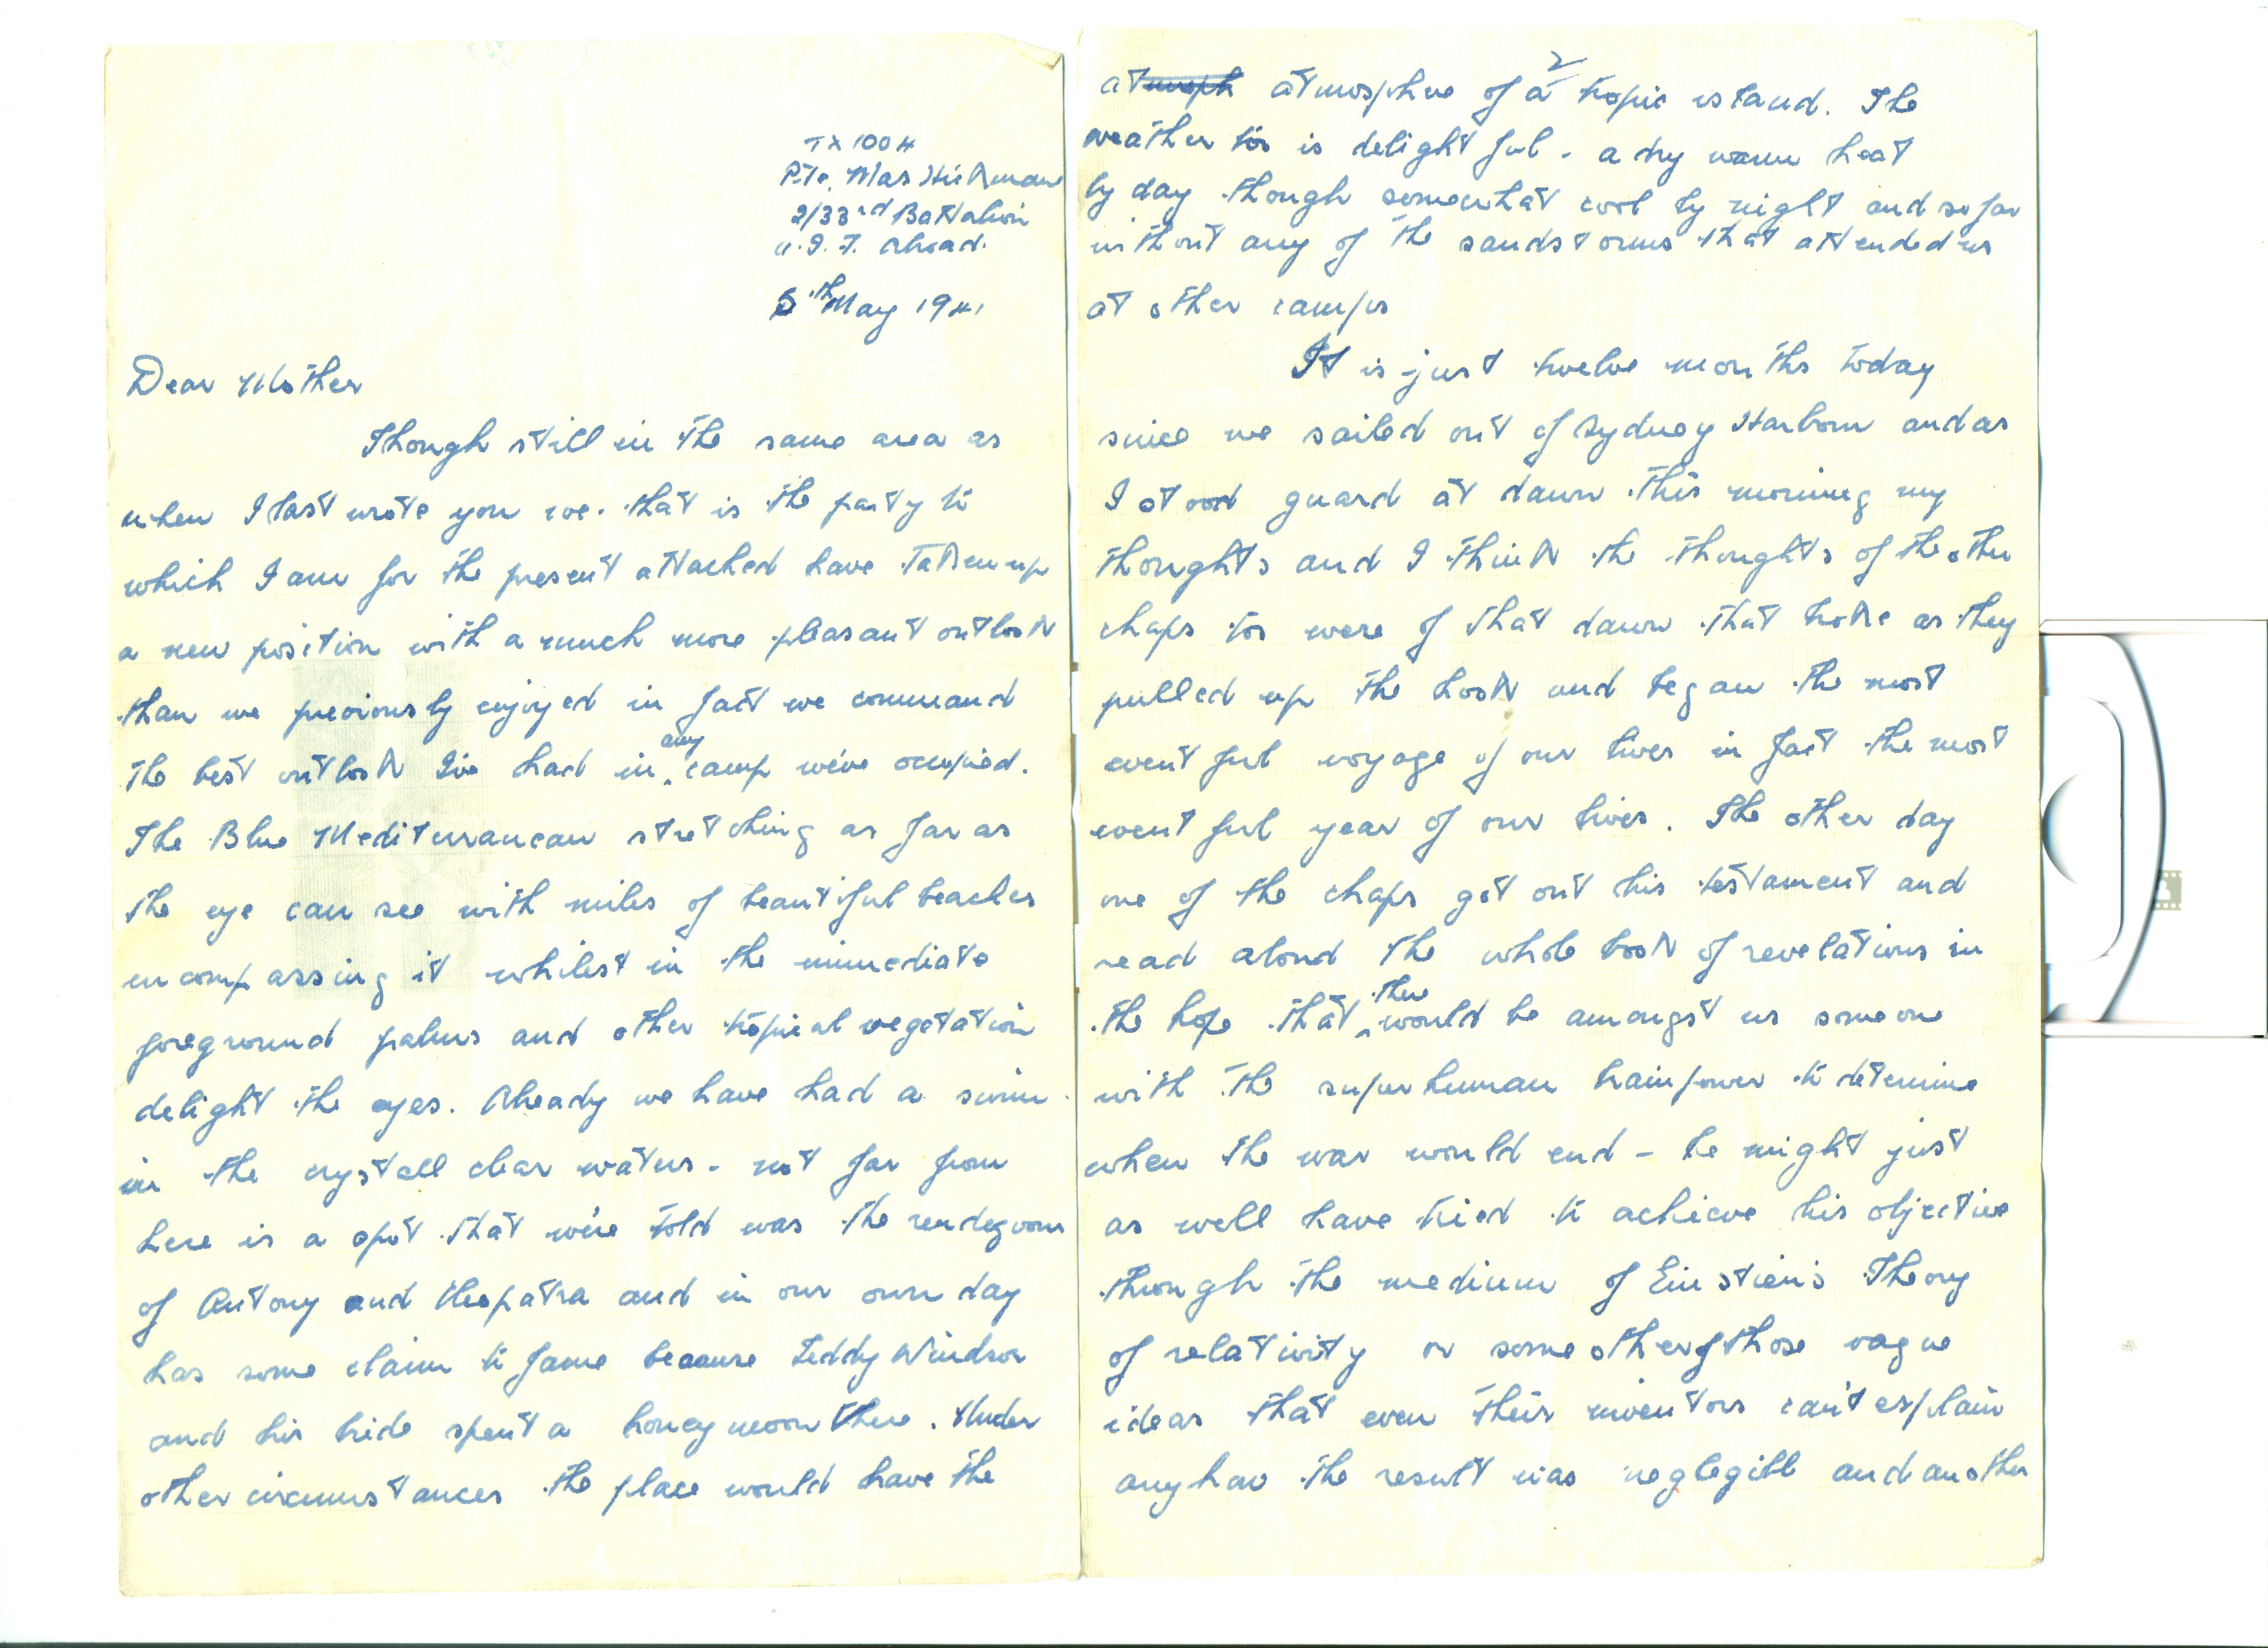 TX 1004
Pte. Mas Hickman
2/33rd Battalion
A.I.F. Abroad.
5th May 1941
Dear Mother
Though still in the same area as
when I last wrote you we. that is the party to
which I am for the present attached have taken up
a new position with a much more pleasant outlook
than we previously enjoyed in fact we command
the best outlook I've had in any camp we've occupied.
The Blue Mediterranean stretching as far as
the eye can see with miles of beautiful beaches
encompassing it whilest in the immediate
foreground palms and other tropical vegetation
delight the eyes. Already we have had a swim
in the crystall clear waters - not far from
here is a spot that we're told was the rendezvous
of Antony and Cleopatra and in our own day
has some claim to fame because Teddy Windsor
and his bride spent a honeymoon there. Under
other circumstances the place would have the
2
atmosph atmosphere of a tropic island. The
weather too is delightful - a dry warm heat
by day though somewhat cool by night and so far
without any of the sandstorms that attended us
at other camps
It is just twelve months today
since we sailed out of Sydney Harbour and as
I stood guard at dawn this morning my
thoughts and I think the thoughts of the other
chaps too were of that dawn that broke as they
pulled up the hook and began the most
eventful voyage of our lives in fact the most
eventful year of our lives. The other day
one of the chaps got out his testament and
read aloud the whole book of revelations in
the hope that there would be amongst us someone
with the superhuman brainpower to determine
when the war would end - he might just
as well have tried to achieve his objective
through the medium of Einstien's Theory
of relativity or some other of those vague
ideas that even their inventors can't explain
anyhow the result was neglegible and another